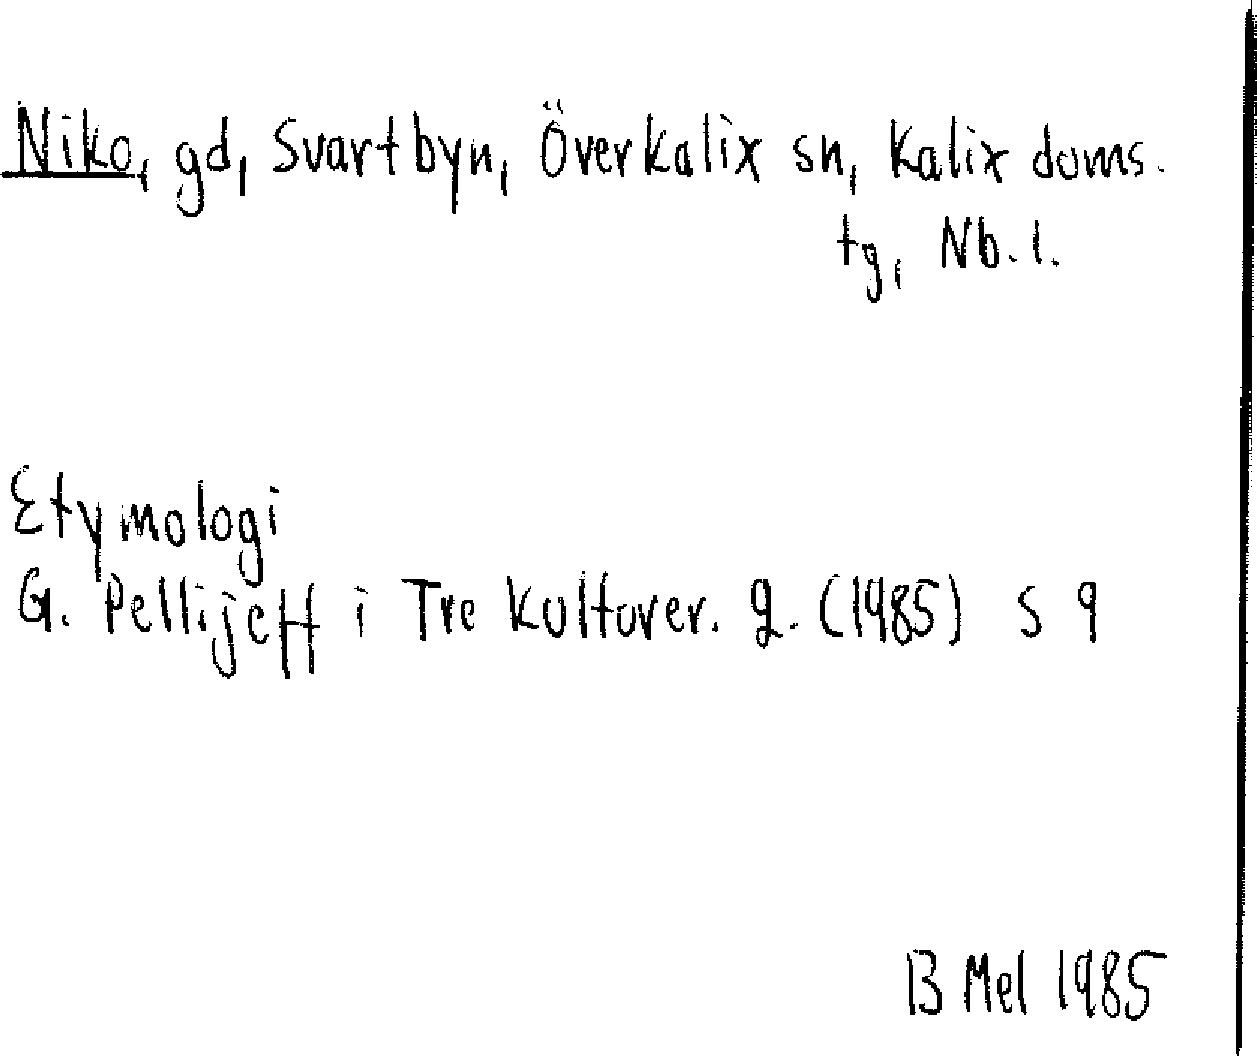 Niko, gd, Svartbyn, Överkalix sn, Kalix doms.
tg, Nb. l.
Etymologi
G. Pellijeff i Tre Kulturer. 2. (1985) s 9
B Mel 1985